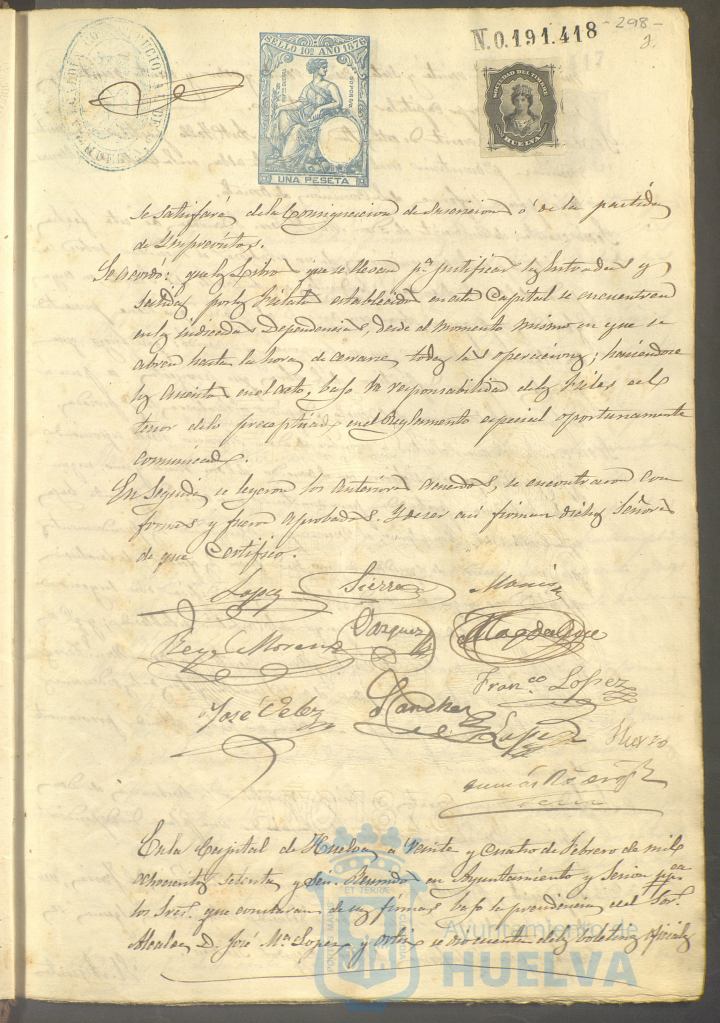 -298-
N.0.191.418
SELLO 10º AÑO 1876
UNA PESETA
SOCIEDAD DEL TIMBRE
HUELVA
se satisfará de la Consignacion de ó de la partida
de Imprevistos.
Se acordó: que los Libros que se llevan pª justificar las Entradas y
Salidas por los Fielatos establecidos en esta Capital se encuentren
en las indicadas Dependencias desde el momento mismo en que se
abren hasta la hora de cerrarse todas las operaciones; haciendose
los asientos en el acto, bajo la responsabilidad de los Fieles al
tenor de lo preceptuado en el Reglamento especial oportunamente
comunicado.
En seguida se leyeron los anteriores acuerdos, se encontraron con
formes y fueron aprobados. Y de ser asi firman dichos Señores
de que Certifico.
Lopez Sierra
Rey Moreno Vazquez Magdalena
Franco Lopez
José Velez Sanchez
Lopez
En la Capital de Huelva a Veinte y cuatro de Febrero de mil
ochocientos setenta y seis. Reunidos en Ayuntamiento y Sesion
los Sres. que constaran de sus firmas bajo la presidencia del Sor.
Alcalde D. José Mª Lopez y Ortiz se dio cuenta de los boletines oficiales
Ayuntamiento de
HUELVA